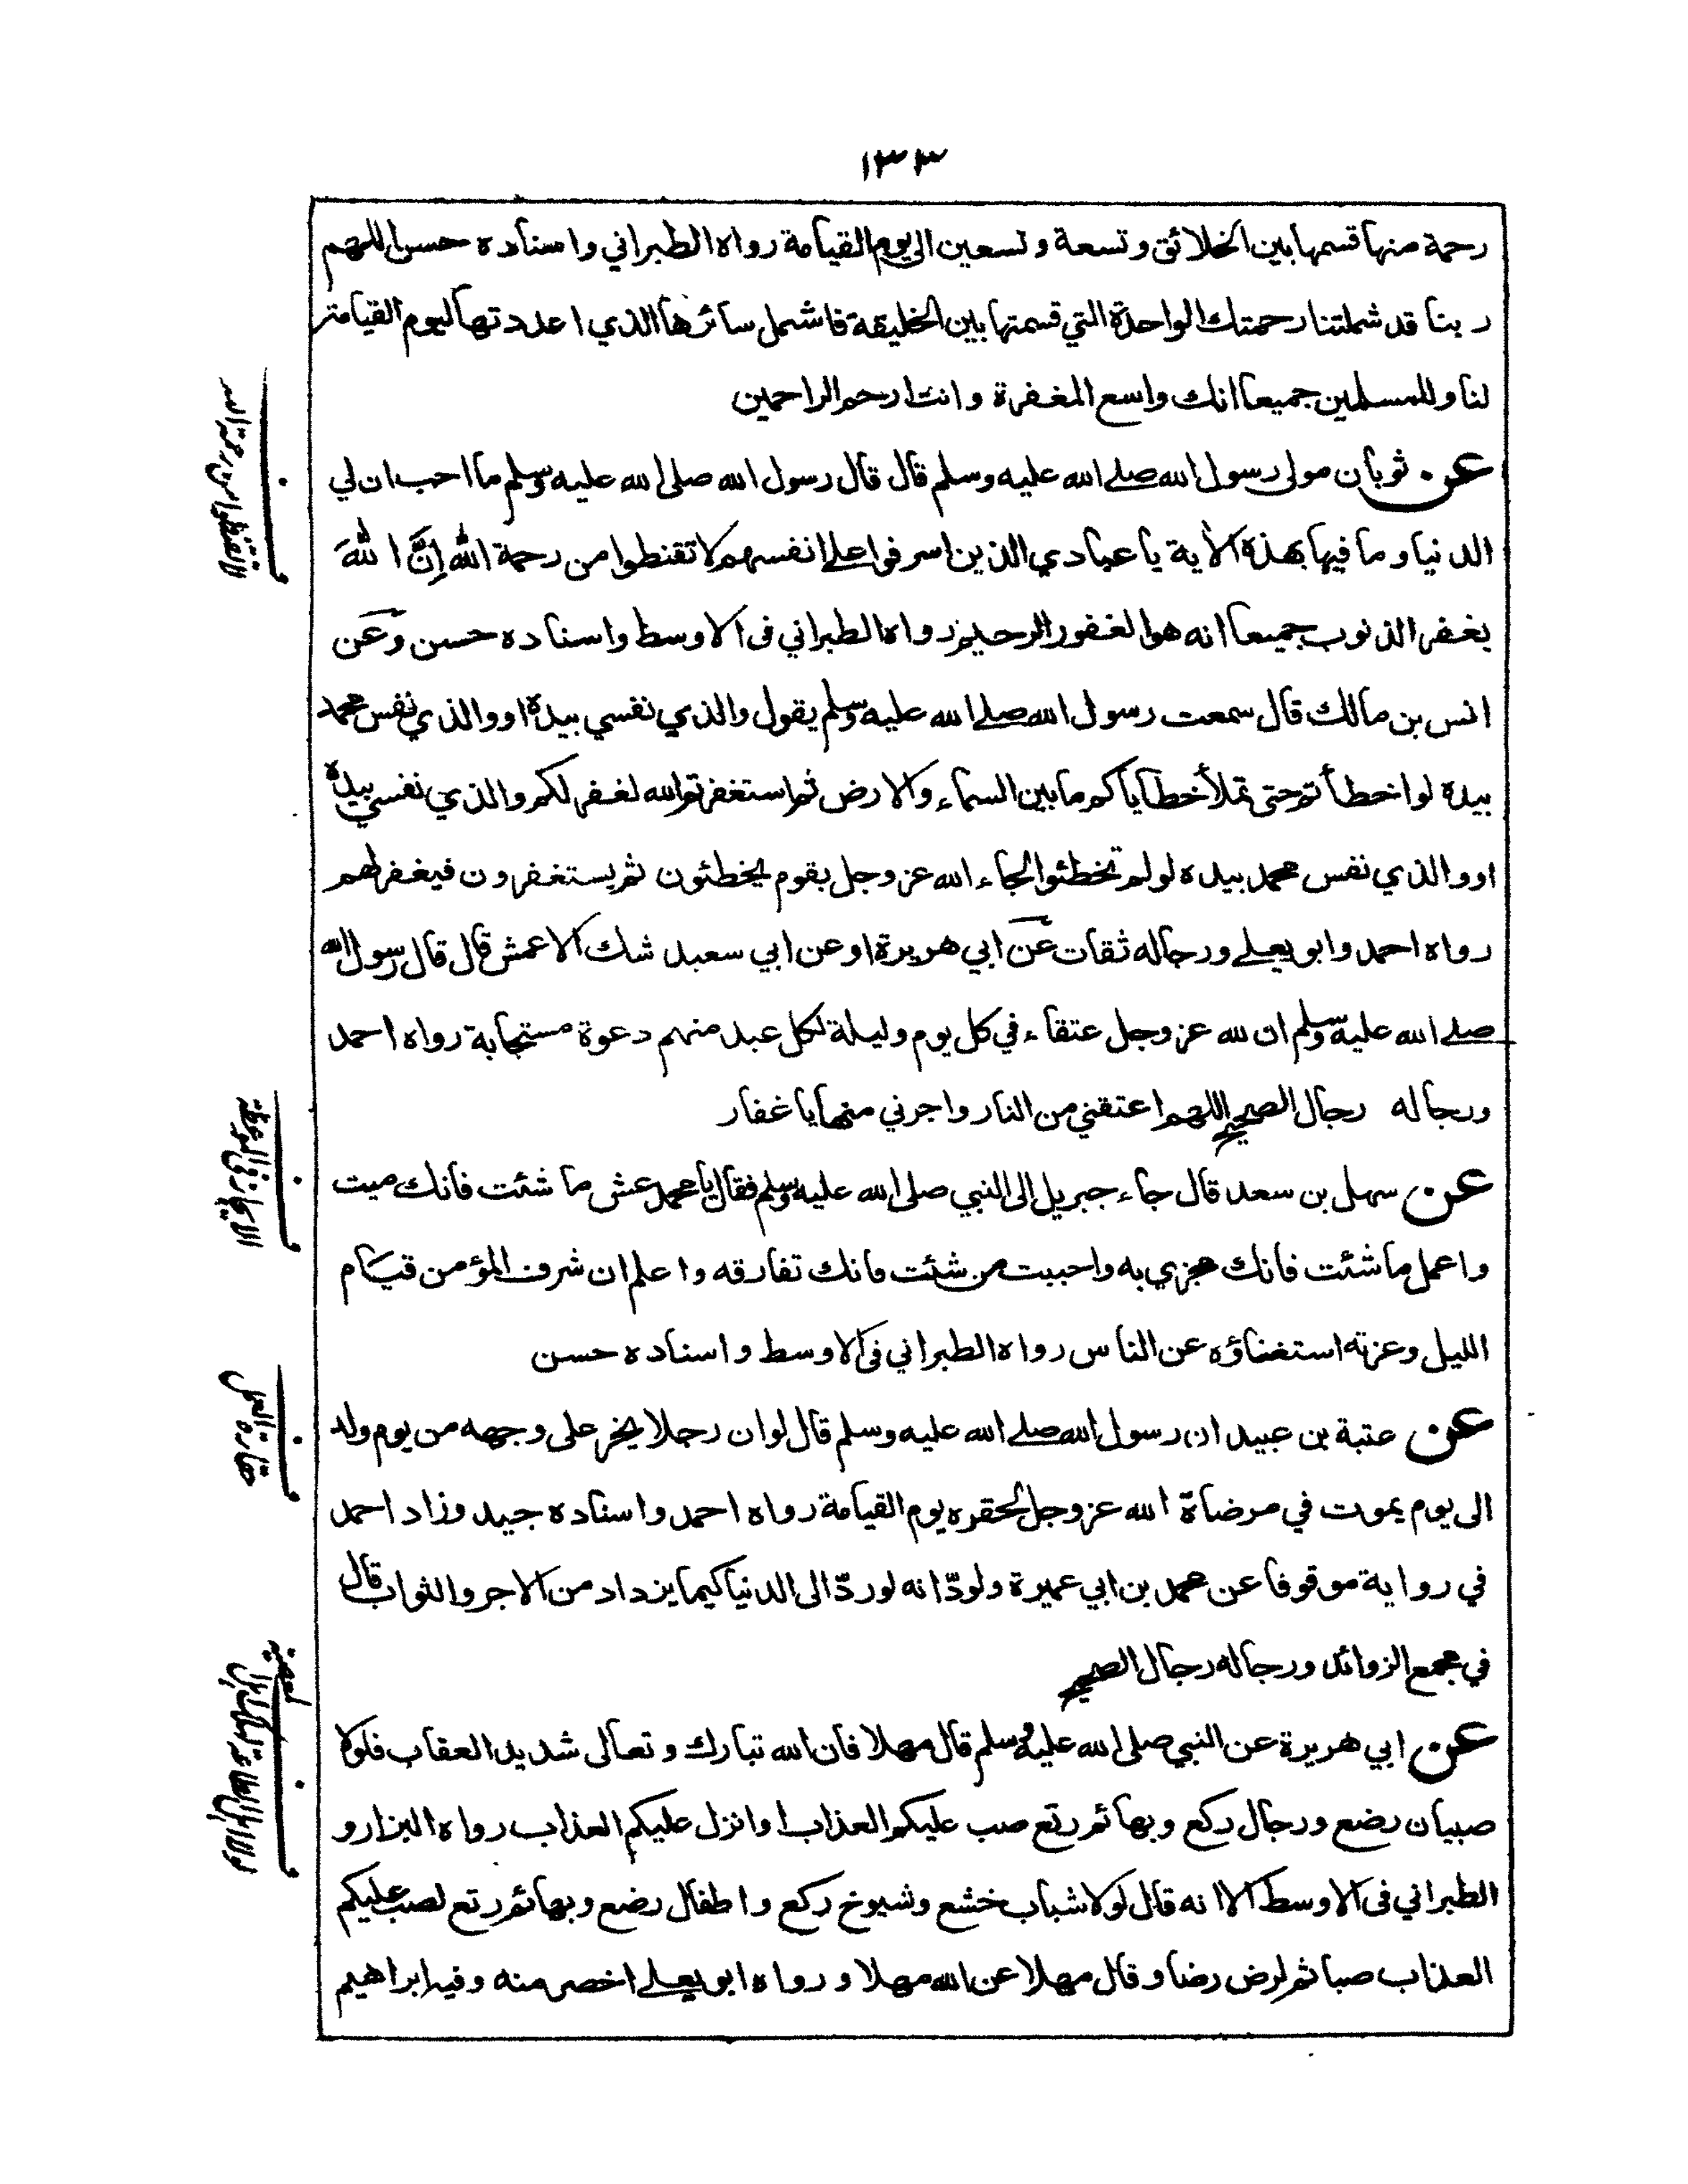 ١٣٣
رحمة منها قسمها بين الخلائق وتسعة وتسعين الى يوم القيامة رواه الطبراني واسناده حسن اللهم
ربنا قد شملتنا رحمتك الواحدة التي قسمتها بين الخليقة فاشمل سائرها الذي اعددتها ليوم القيامة
لنا وللمسلمين جميعا انك واسع المغفرة وانت ارحم الراحمين
عن ثوبان مولى رسول الله صلے الله عليه وسلم قال قال رسول الله صلى الله عليه وسلم ما احب ان لي
الدنيا وما فيها بهذه الاية يا عبادي الذين اسرفوا علے انفسهم لا تقنطوا من رحمة الله اِنَّ اللهَ
يغفر الذنوب جميعا انه هو الغفور الرحيم رواه الطبراني فى الاوسط واسناده حسن وعن
انس بن مالك قال سمعت رسول الله صلے الله عليه وسلم يقول والذي نفسي بيدة او والذي نفس محمد
بيدة لو اخطأتم حتى تملأ خطاياكم ما بين السماء والارض ثم استغفرتم الله لغفر لكم والذي نفسي بيدة
او والذي نفس محمد بيده لو لم تخطئوا لجاء الله عز وجل بقوم يخطئون ثم يستغفرون فيغفر لهم
رواه احمد وابو يعلے ورجاله ثقات عن ابي هريرة او عن ابي سعيد شك الاعمش قال قال رسول الله
صلے الله عليه وسلم ان لله عز وجل عتقاء في كل يوم وليلة لكل عبد منهم دعوة مستجابة رواه احمد
ورجاله رجال الصحيح اللهم اعتقني من النار واجرني منها يا غفار
عن سهل بن سعد قال جاء جبريل الى النبي صلى الله عليه وسلم فقال يا محمد عش ما شئت فانك ميت
واعمل ما شئت فانك مجزي به واحببت من شئت فانك تفارقه واعلم ان شرف المؤمن قيام
الليل وعزته استغناؤه عن الناس رواه الطبراني فى الاوسط واسناده حسن
عن عتبة بن عبيد ان رسول الله صلے الله عليه وسلم قال لو ان رجلا يخر على وجهه من يوم ولد
الى يوم يموت في مرضاة الله عز وجل لحقره يوم القيامة رواه احمد واسناده جيد وزاد احمد
في رواية موقوفا عن محمد بن ابي عميرة ولودّ انه لو ردّ الى الدنيا كيما يزداد من الاجر والثواب قال
في مجمع الزوائد ورجاله رجال الصحيح
عن ابي هريرة عن النبي صلى الله عليه وسلم قال مهلا فان الله تبارك وتعالى شديد العقاب فلولا
صبيان رضع ورجال ركع وبهائم رتع صب عليكم العذاب او انزل عليكم العذاب رواه البزار و
الطبراني فى الاوسط الا انه قال لولا شباب خشع وشيوخ ركع واطفال رضع وبهائم رتع لصب عليكم
العذاب صبا ثم لرض رضا وقال مهلا عن الله مهلا ورواه ابو يعلے اخصر منه وفيه ابراهيم
لا تقنطوا من رحمة الله
الايجاز فى الموعظة
حقارة العمل
لولا اهل الطاعة لهلك اهل المعصية